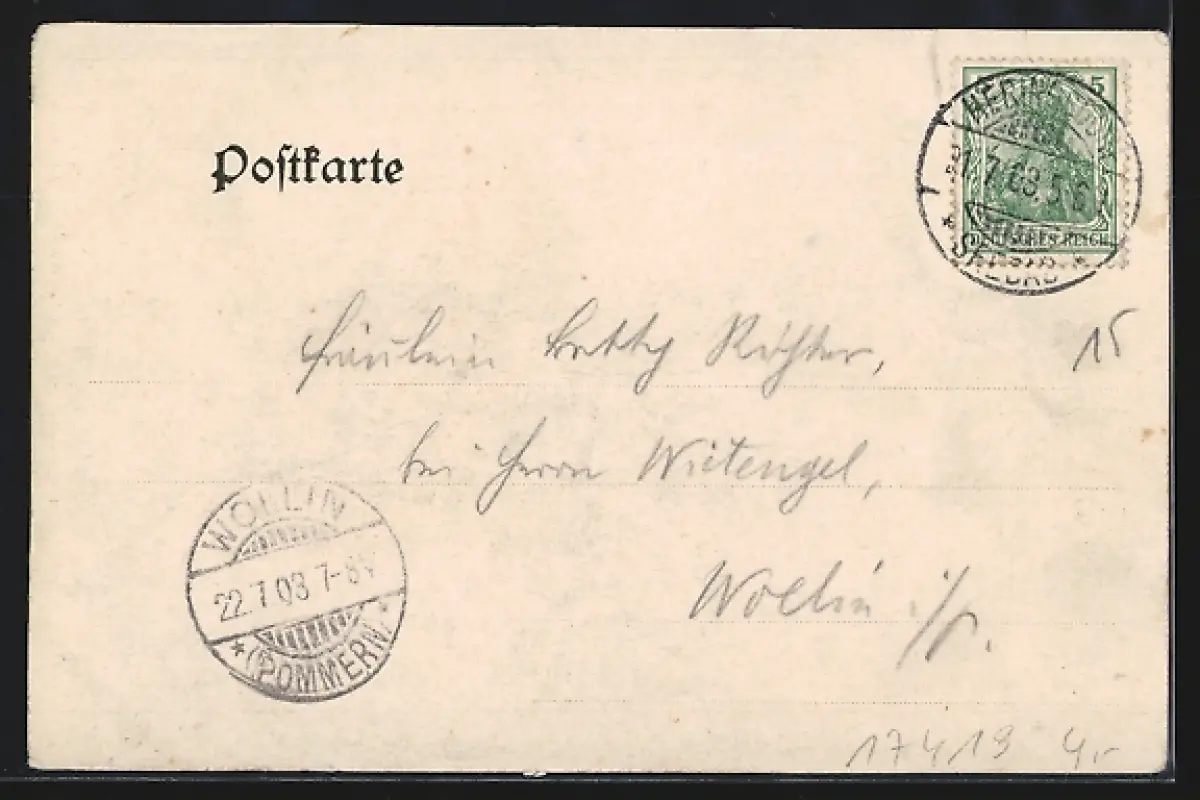 Postkarte
5
HERINGSDORF
21.7.03. 5-6
SEEBAD
DEUTSCHES REICH
Fräulein Betty Richter,
15
bei Herrn Wietengel,
WOLLIN
22.7.03 7-8V
* (POMMERN) *
Wollin i/P.
17419 4,-